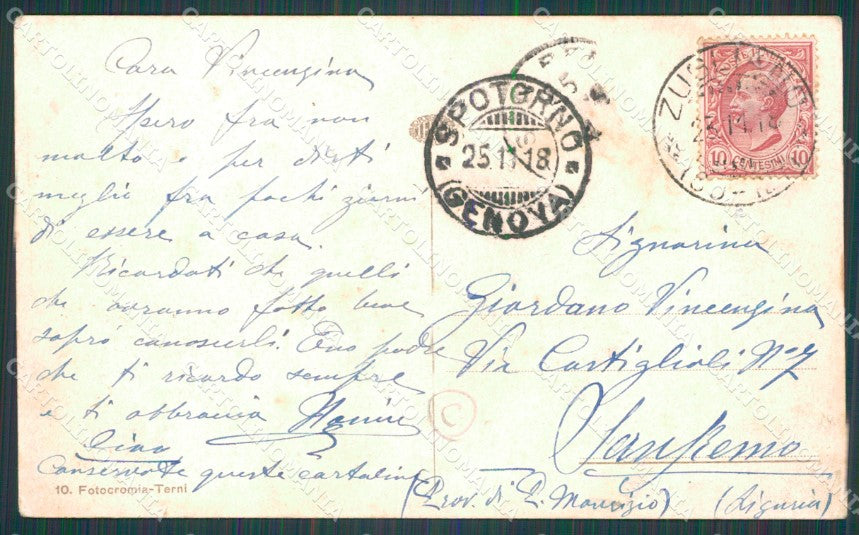 Cara Vincenzina
Spero fra non
molto e per dirti
meglio fra pochi giorni
di essere a casa.
Ricordati che quelli
che avranno fatto bene
sapró conoscerli. Tuo padre
che ti ricordo sempre
e ti abbraccia
Ciao
Conservate queste cartoline
10. Fotocromia-Terni
SPOTORNO
25.11.18
(GENOVA)
10 CENTESIMI 10
Signorina
Giordano Vincenzina
Via Castiglioli No 7
SanRemo
(Prov. di P. Maurizio) (Liguria)
C
CARTOLINOMANIA